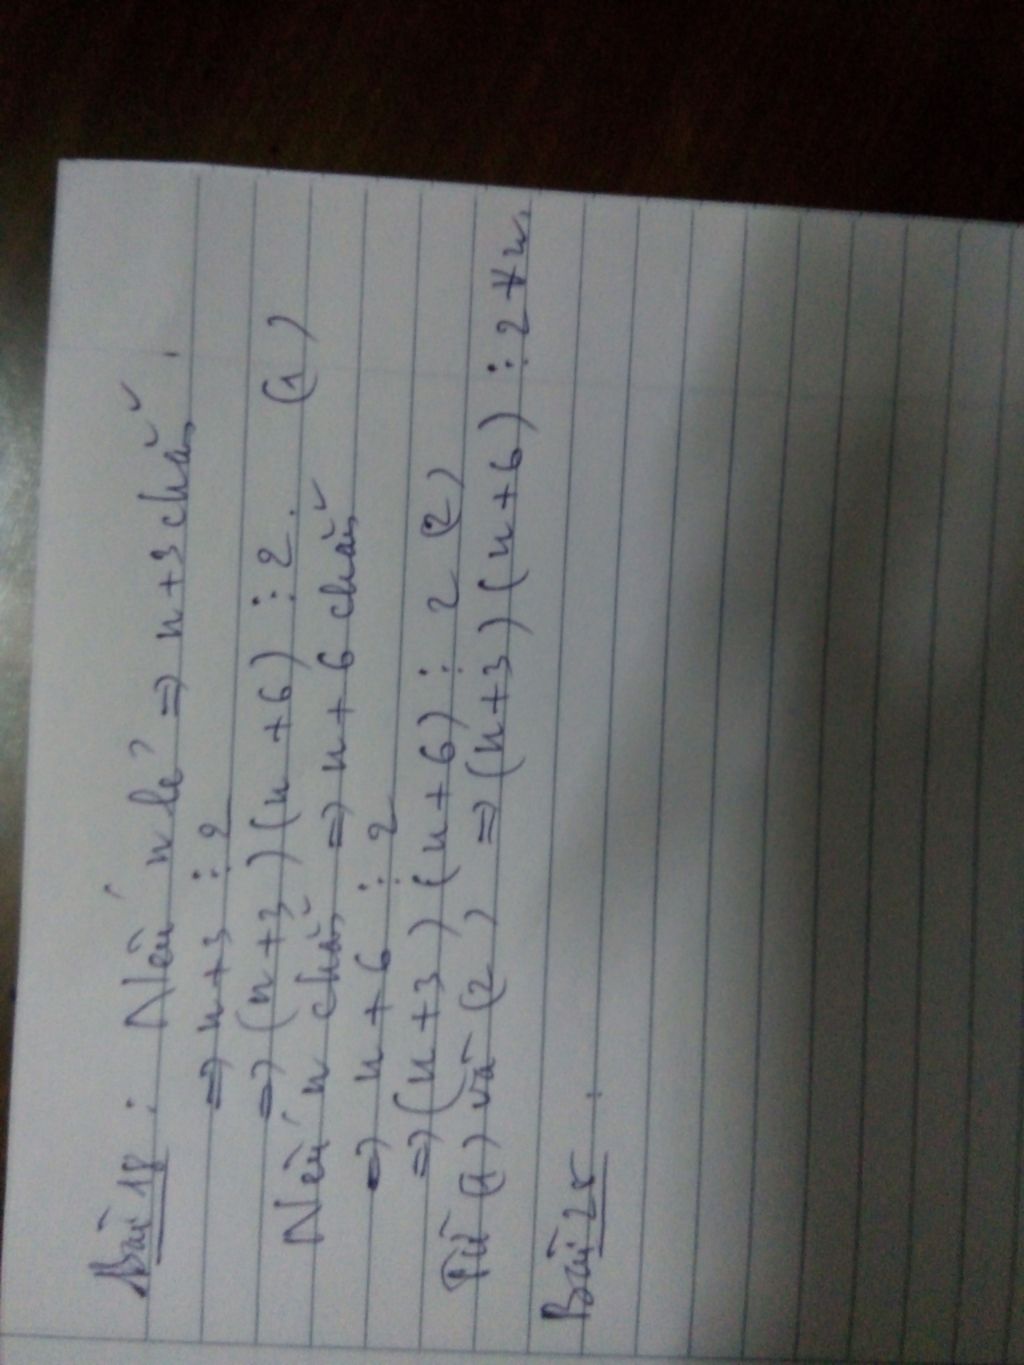 Bài 18 : Nếu n lẻ ⇒ n+3 chẵn.
⇒ n+3 ⋮ 2
⇒ (n+3)(n+6) ⋮ 2. (1)
Nếu n chẵn ⇒ n+6 chẵn
⇒ n+6 ⋮ 2
⇒ (n+3)(n+6) ⋮ 2 (2)
Từ (1) và (2) ⇒ (n+3)(n+6) ⋮ 2 ∀n.
Bài 25.